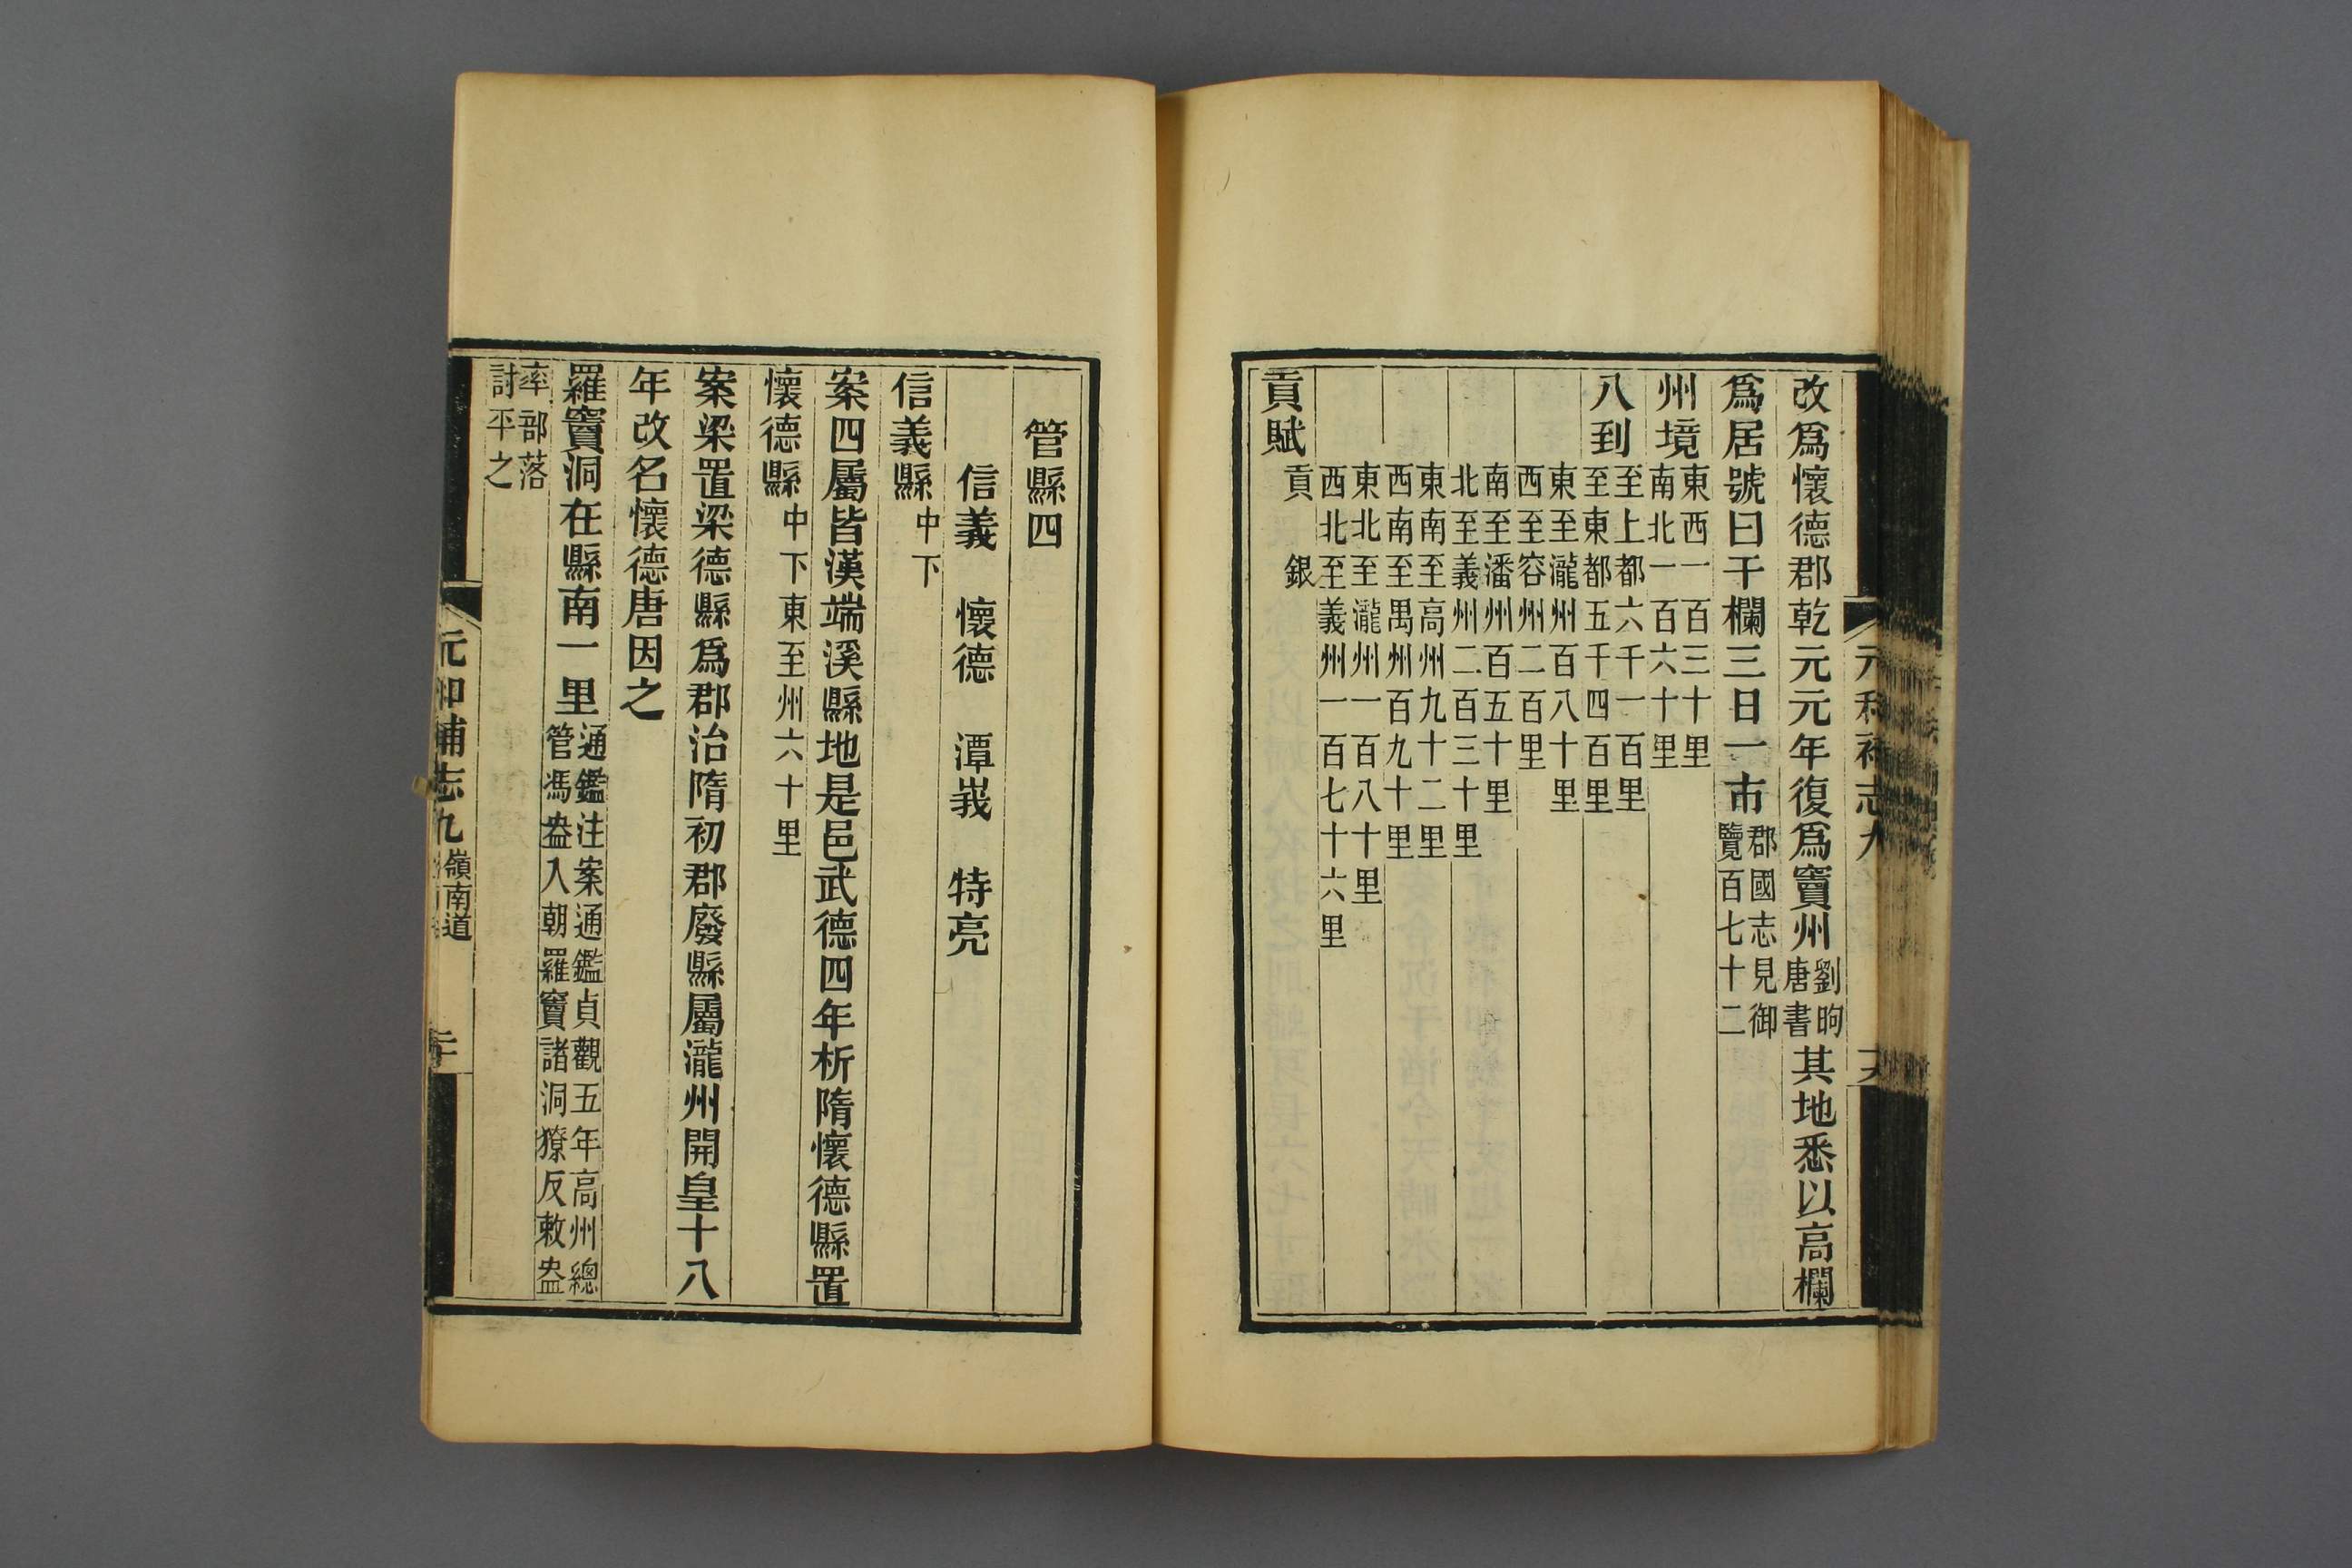 改爲懷德郡乾元元年復爲竇州劉昫唐書其地悉以高欄
爲居號曰干欄三日一市郡國志見御覽百七十二
州境東西一百三十里南北一百六十里
八到至上都六千一百里至東都五千四百里
東至瀧州百八十里西至容州二百里
南至潘州百五十里北至義州二百三十里
東南至高州九十二里西南至禺州百九十里
東北至瀧州一百八十里西北至義州一百七十六里
貢賦貢銀
管縣四
信義 懷德 潭峩 特亮
信義縣中下
案四屬皆漢端溪縣地是邑武德四年析隋懷德縣置
懷德縣中下東至州六十里
案梁置梁德縣爲郡治隋初郡廢縣屬瀧州開皇十八
年改名懷德唐因之
羅竇洞在縣南一里通鑑注案通鑑貞觀五年高州總管馮盎入朝羅竇諸洞獠反敕盎
率部落討平之
元和補志九嶺南道